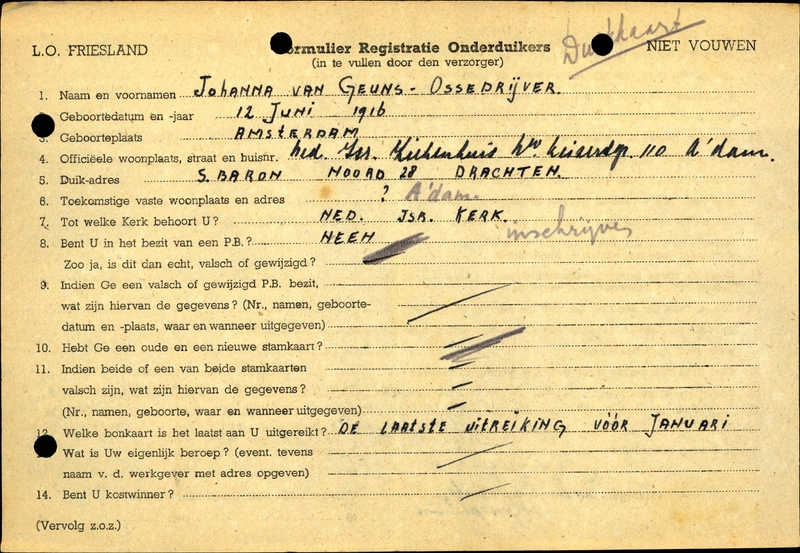 L.O. FRIESLAND
ormulier Registratie Onderduikers
(in te vullen door den verzorger)
Duikkaart
NIET VOUWEN
1. Naam en voornamen JOHANNA VAN GEUNS - OSSEDRIJVER.
Geboortedatum en -jaar 12 JUNI 1916
3. Geboorteplaats AMSTERDAM
4. Officiëele woonplaats, straat en huisnr. Ned. Isr. Ziekenhuis Nw. Keizersgr. 110 A'dam.
5. Duik-adres S. BARON NOORD 28 DRACHTEN.
6. Toekomstige vaste woonplaats en adres ? A'dam.
7. Tot welke Kerk behoort U? NED. ISR. KERK.
inschrijven
8. Bent U in het bezit van een P.B.? NEEN
Zoo ja, is dit dan echt, valsch of gewijzigd?
9. Indien Ge een valsch of gewijzigd P.B. bezit,
wat zijn hiervan de gegevens? (Nr., namen, geboorte-
datum en -plaats, waar en wanneer uitgegeven)
10. Hebt Ge een oude en een nieuwe stamkaart?
11. Indien beide of een van beide stamkaarten
valsch zijn, wat zijn hiervan de gegevens?
(Nr., namen, geboorte, waar en wanneer uitgegeven)
12. Welke bonkaart is het laatst aan U uitgereikt? DE LAATSTE UITREIKING VÓÓR JANUARI
Wat is Uw eigenlijk beroep? (event. tevens
naam v. d. werkgever met adres opgeven)
14. Bent U kostwinner?
(Vervolg z.o.z.)